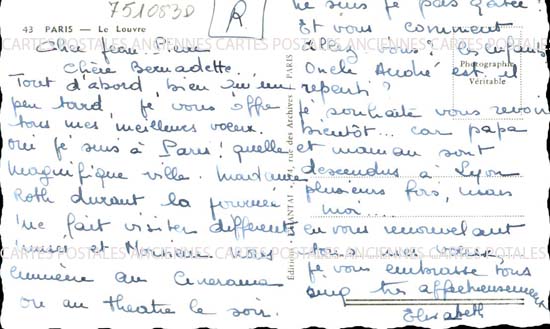 751083D
R
43 PARIS — Le Louvre
Cher Jean-Pierre
Chère Bernadette...
Tout d'abord, bien qu'un
peu tard, je vous offre
tous mes meilleurs voeux.
oui je suis à Paris! quelle
magnifique ville. Madame
Roth durant la journée
me fait visiter différents
musées et Monsieur nous
emmène au Cinérama
ou au théâtre le soir.
ne suis je pas gâtée!
Et vous comment
allez vous? les enfants?
Oncle André est il
reparti?
je souhaite vous revoir
bientôt... car papa
et maman sont
descendus à Lyon
plusieurs fois, mais
moi...
en vous renouvelant
tous mes voeux,
je vous embrasse tous
cinq très affectueusement
Elisabeth
Photographie
Véritable
Éditions CHANTAL, rue des Archives, PARIS
CARTES POSTALES ANCIENNES CARTES POSTALES ANCIENNES CARTES POSTALES
POSTALES ANCIENNES CARTES POSTALES ANCIENNES CARTES POSTALES